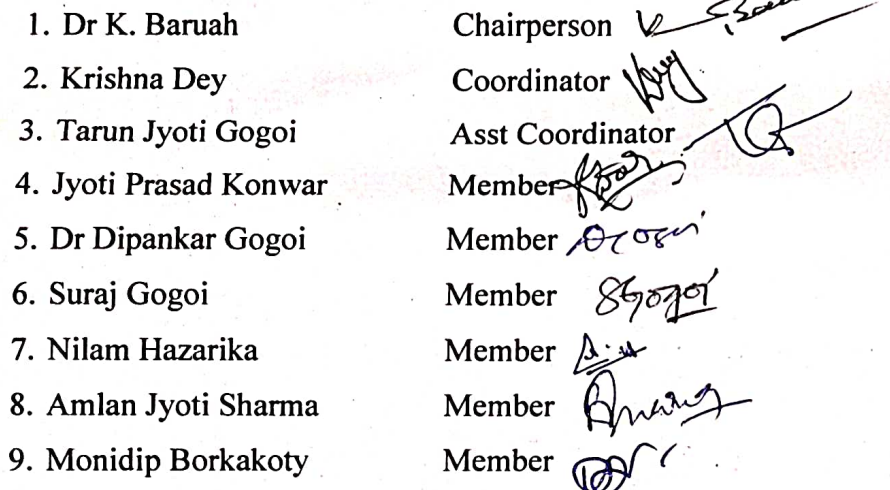 1. Dr K. Baruah Chairperson
2. Krishna Dey Coordinator
3. Tarun Jyoti Gogoi Asst Coordinator
4. Jyoti Prasad Konwar Member
5. Dr Dipankar Gogoi Member
6. Suraj Gogoi Member SGogoi
7. Nilam Hazarika Member
8. Amlan Jyoti Sharma Member
9. Monidip Borkakoty Member